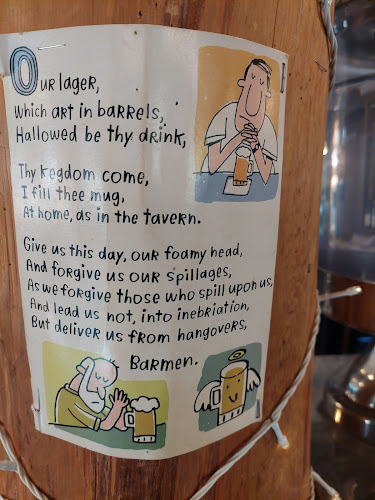 Our lager,
Which art in barrels,
Hallowed be thy drink,
Thy kegdom come,
I fill thee mug,
At home, as in the tavern.
Give us this day, our foamy head,
And forgive us our spillages,
As we forgive those who spill upon us,
And lead us not, into inebriation,
But deliver us from hangovers,
Barmen.